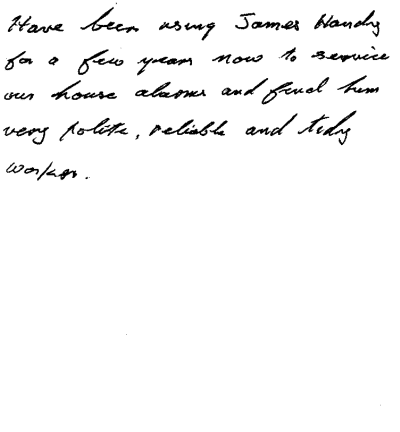 Have been using James Handy
for a few years now to service
our house alarms and find him
very polite, reliable and tidy
worker.